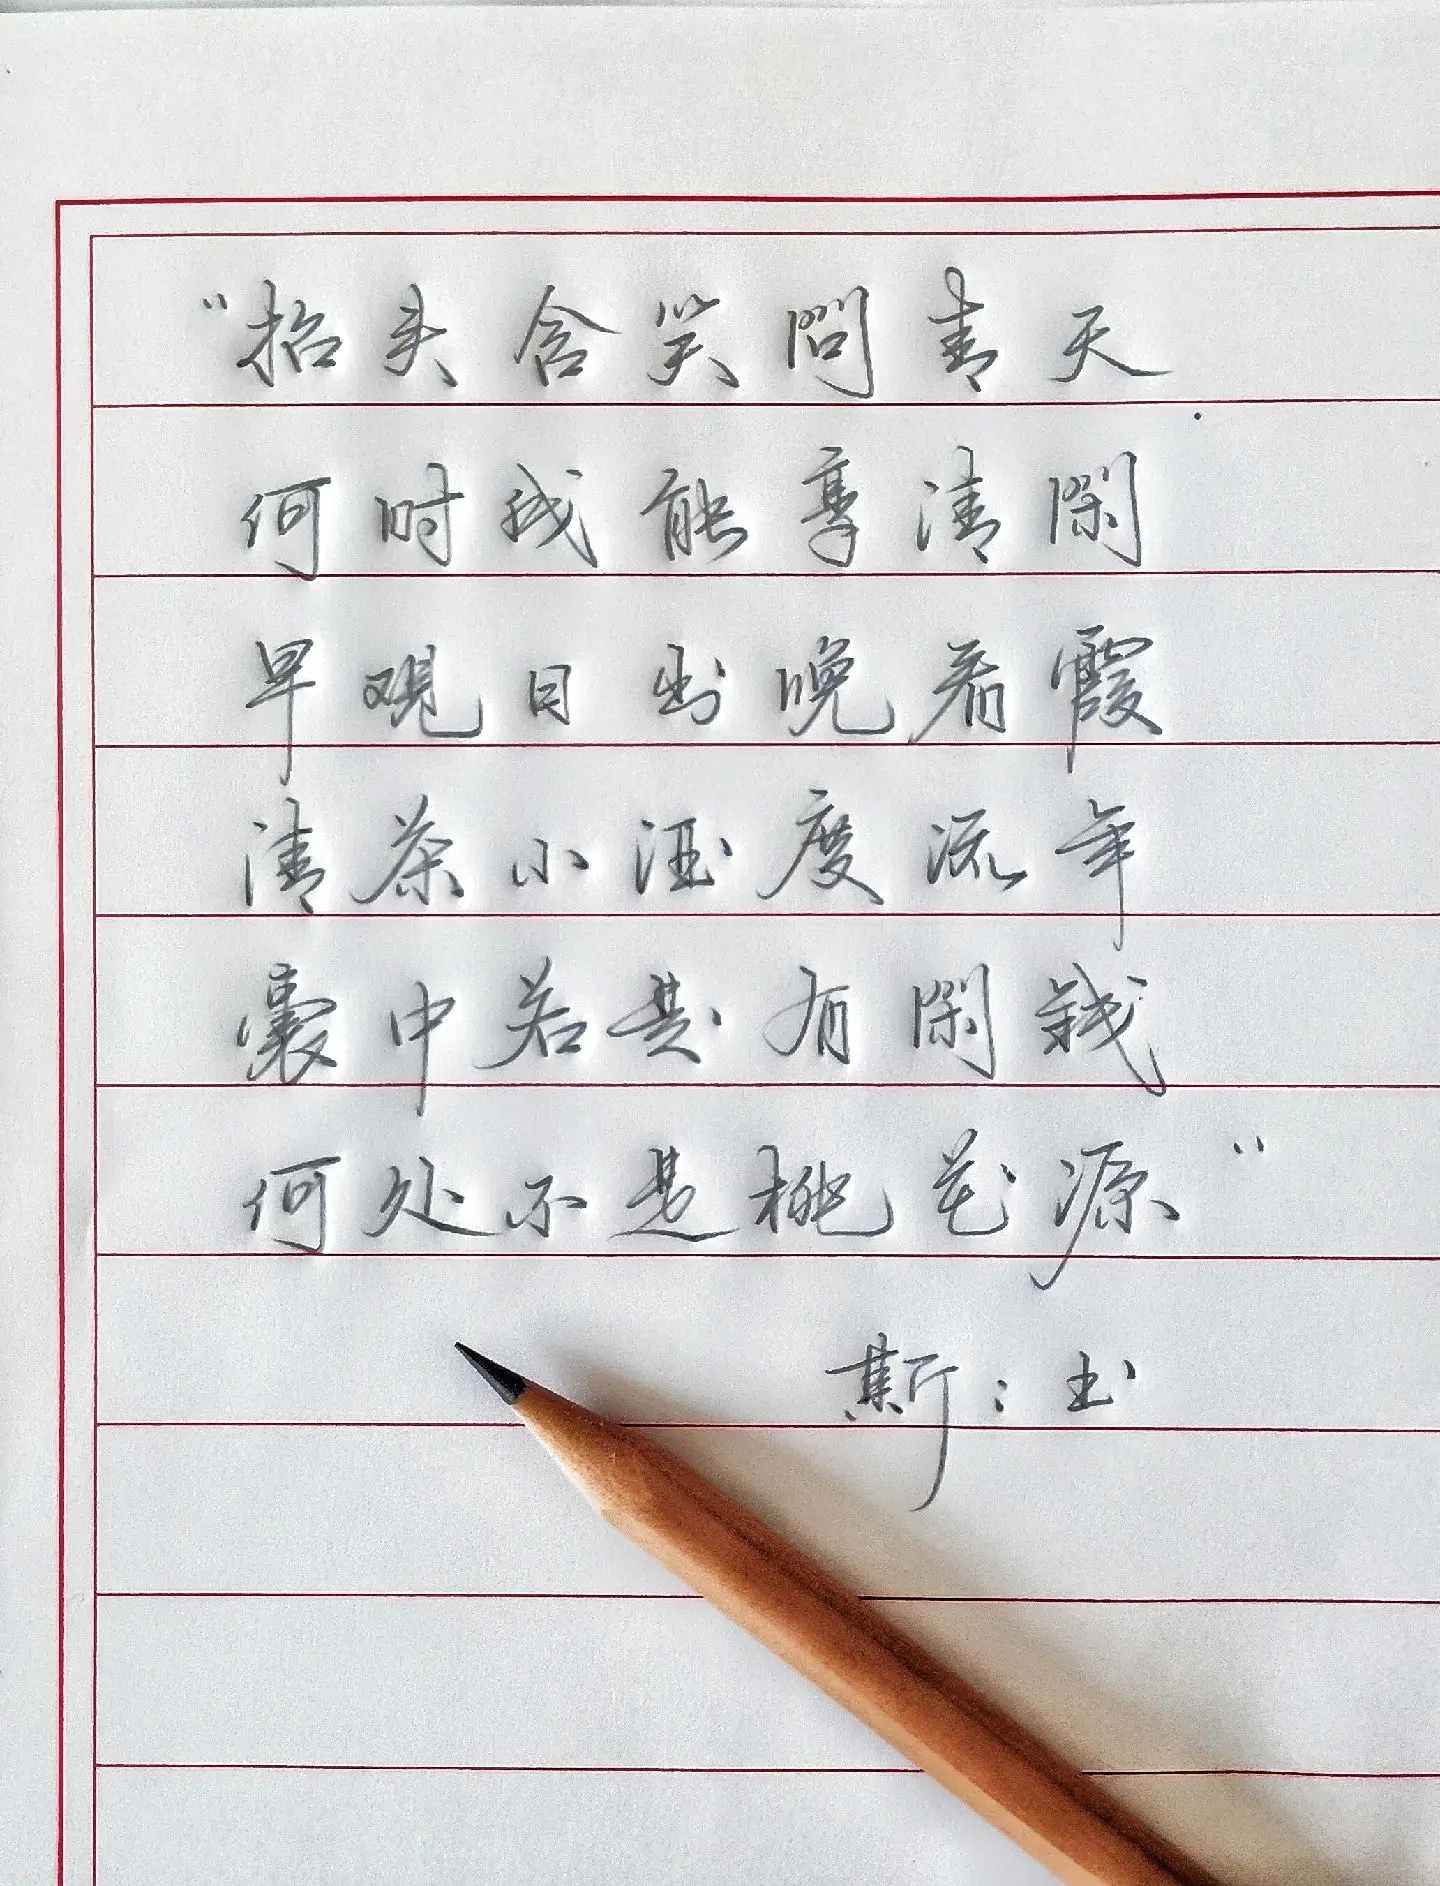 “抬头含笑問青天
何时我能享清閑
早观日出晚看霞
清茶小酒度流年
囊中若是有閑錢
何处不是桃花源”
斯：书